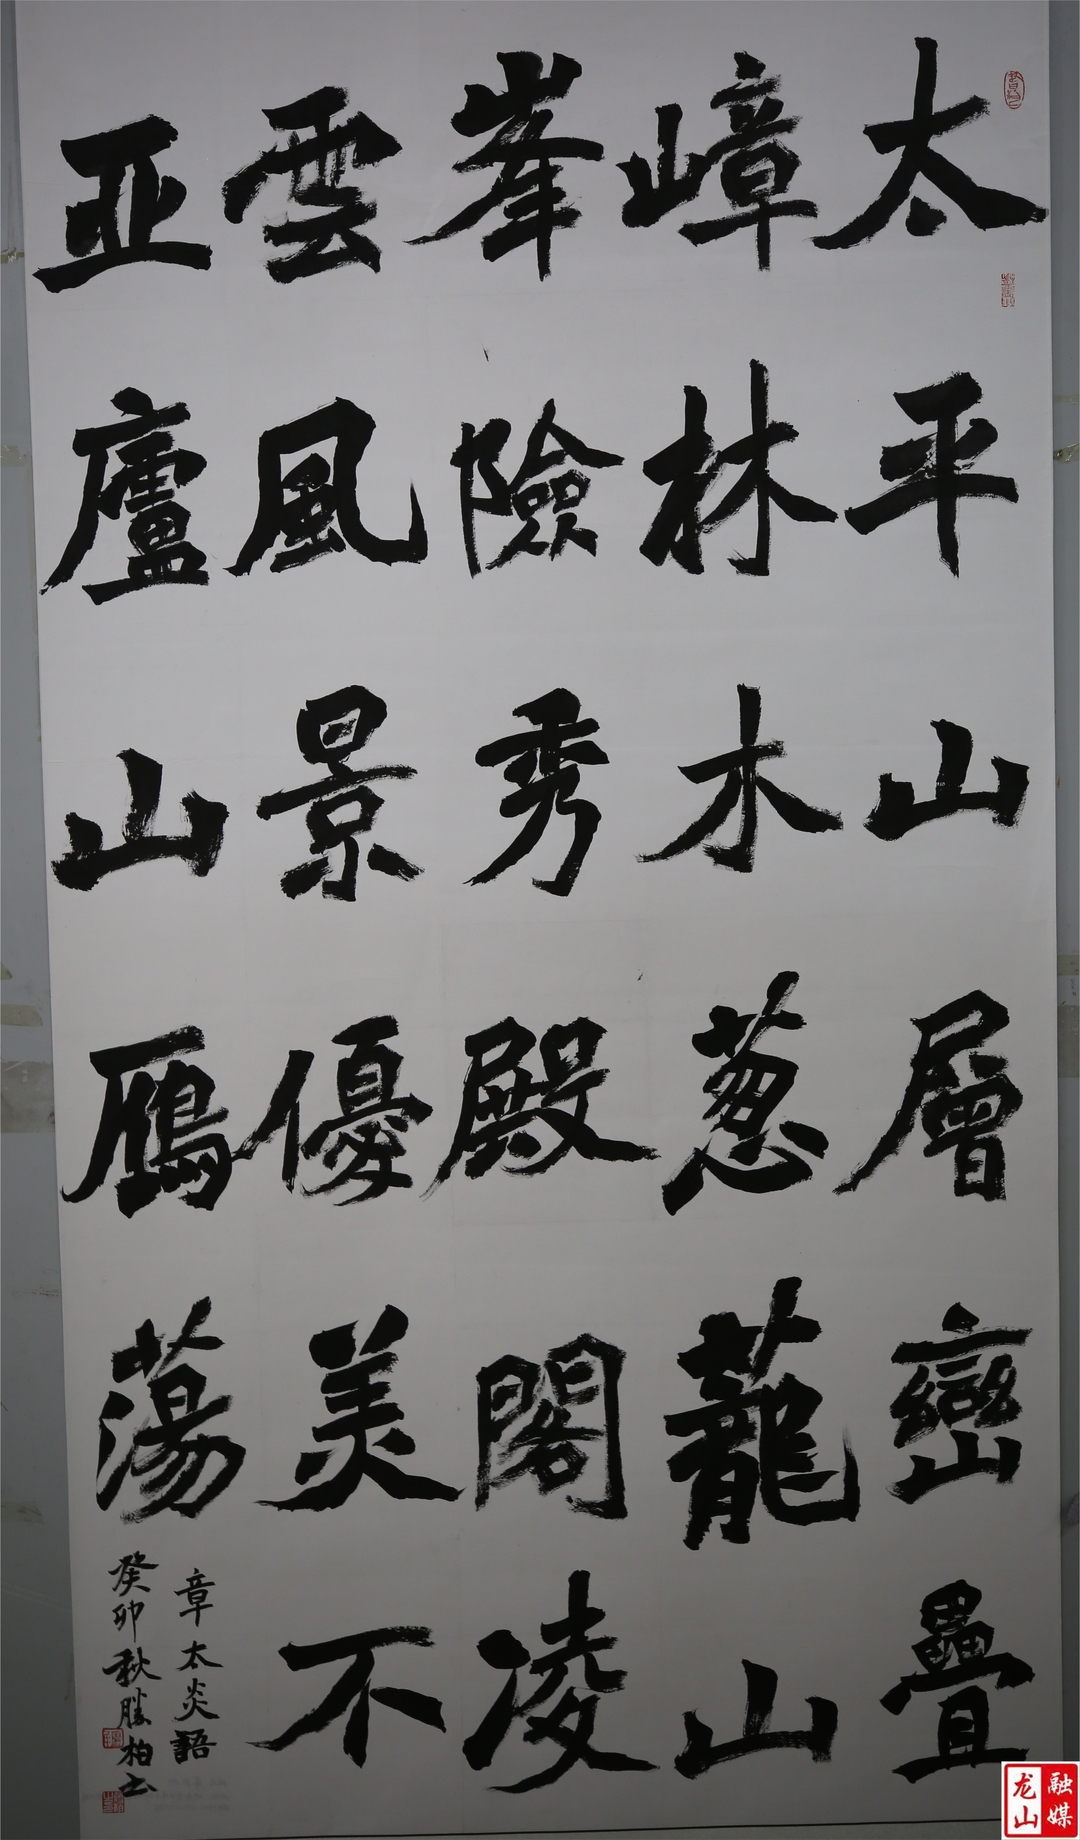 太平山層巒疊
嶂林木葱蘢山
峯險秀殿閣凌
雲風景優美不
亞廬山雁蕩
章太炎語
癸卯秋勝柏书
龙山融媒